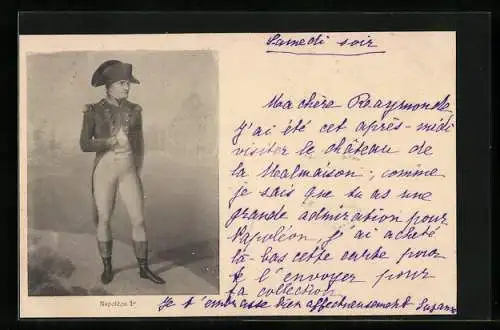 Samedi soir
Ma chère Raymonde,
J'ai été cet après-midi
visiter le château de
la Malmaison; comme
je sais que tu as une
grande admiration pour
Napoléon, j'ai acheté
là-bas cette carte pour
te l'envoyer pour
ta collection
Je t'embrasse bien affectueusement Suzanne
Napoléon 1er